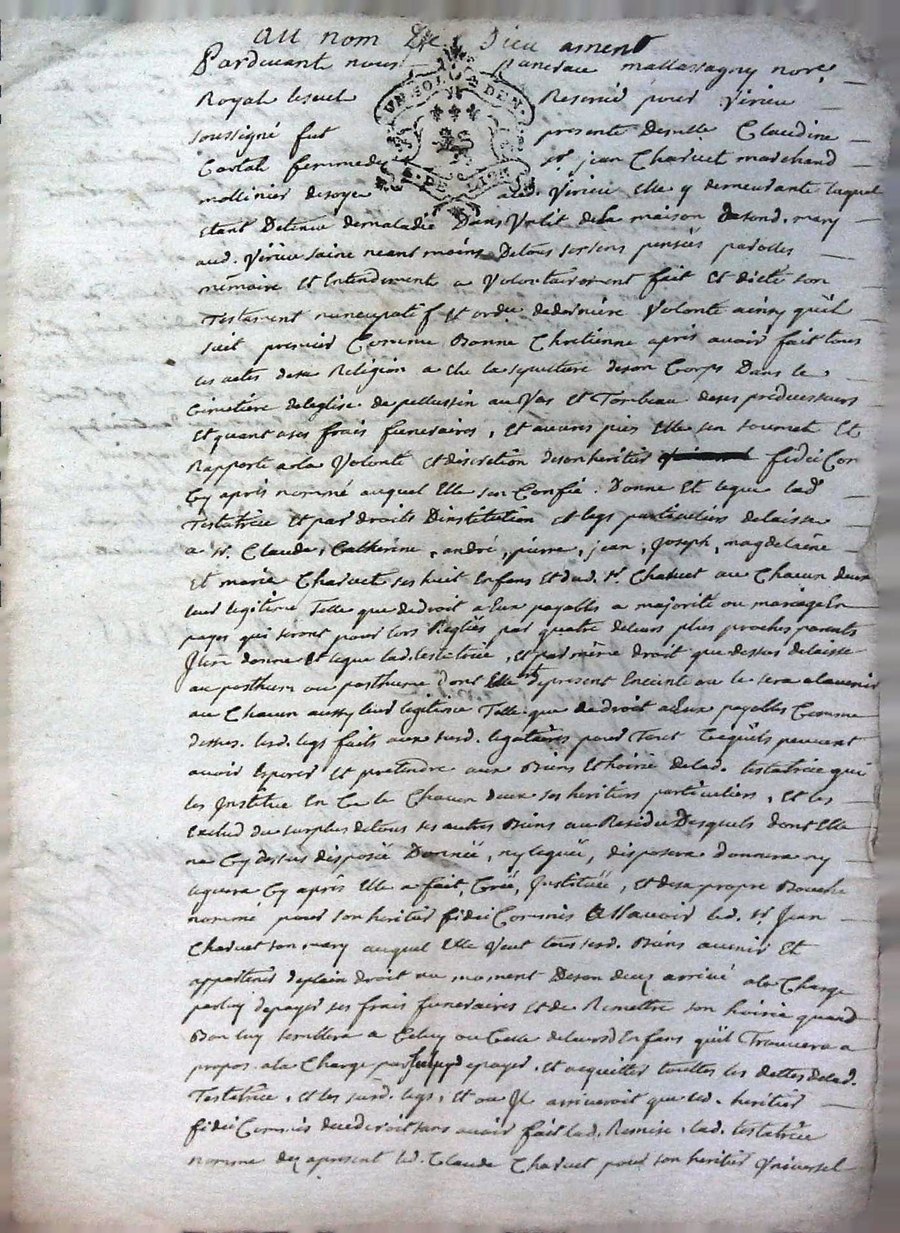 au nom De Dieu amen
Pardevant nous pancrace mallassagny nore
Royal Reservé pour Virieu
UN SOL A DEN
DE LION
soussigné fut presente Demlle Claudine
femme de sr. jean Charuet marchand
mollinier de soye aud. Virieu elle y demeurante laquel
etant Detenue de maladie Dans Un lit dela maison de sond. mary
aud. Virieu saine neantmoins De tous ses sens pensées parolles
mémoire et Entendement a Volontairement fait et dicté son
Testament nuncupatif et ordre de derniere Volonté ainsy quil
suit premier Comme Bonne Chretienne apres avoir fait tous
les actes de sa Religion a elu la sepulture de son Corps Dans le
Cimetiere de leglise de pellussin au Vas et Tombeau de ses predecesseurs
Et quant a ses frais funeraires, et auvres pies Elle sen soumet Et
Rapporte a la Volonté et discretion de son heritier fidei Com
Cy apres nommé auquel Elle sen Confie. Donne Et legue lade
Testatrice et par droits Dinstitution et legs particuliers delaisse
a sr. Claude, Catherine, andré, pierre, jean, Joseph, magdelaine
Et marie Charuet ses huit Enfans et dud. sr. Charuet au Chacun deux
leur legitime Telle que de droit a Eux payables a majorité ou mariage En
payes qui seront pour lors Reglés par quatre de leurs plus proches parents
Item donne Et legue lad. testatrice, et par même droit que dessus delaisse
au posthume ou posthume dont Elle est de present Enceinte ou le sera a lavenir
au Chacun aussy leur legitime Telle que de droit a Eux payables Comme
dessus. lesd. legs faits aux susd. legataires pour Tout Ce quils peuvent
avoir Esperer Et pretendre aux Biens Et hoirie de lad. testatrice qui
les Institue En Ce le Chacun deux ses heritiers particuliers, et les
Exclud du surplus de tous ses autres Biens au Residu Desquels dont Elle
na Cy dessus disposée Donnée, ny leguée, disposera donnera ny
leguera Cy après Elle a fait, Créé, Instituée, et de sa propre Bouche
nommé pour son heritier fidei Commis assavoir led. sr. Jean
Charuet son mary auquel Elle Veut tous sesd. Biens avenir Et
appartenir de plain droit au moment De son deces arrivé a la Charge
par luy de payer ses frais funeraires et de Remettre son hoirie quand
Bon luy semblera a Celuy ou Celle de leursd. Enfans quil Trouvera a
propos. a la Charge par de payer, et acquitter touttes les dettes de lad.
Testatrice, et les susd. legs, et ou Il arriveroit que led. heritier
fidei Commis decederoit sans avoir fait lad. Remise, lad. testatrice
nomme des apresent led. Claude Charuet pour son heritier Universel